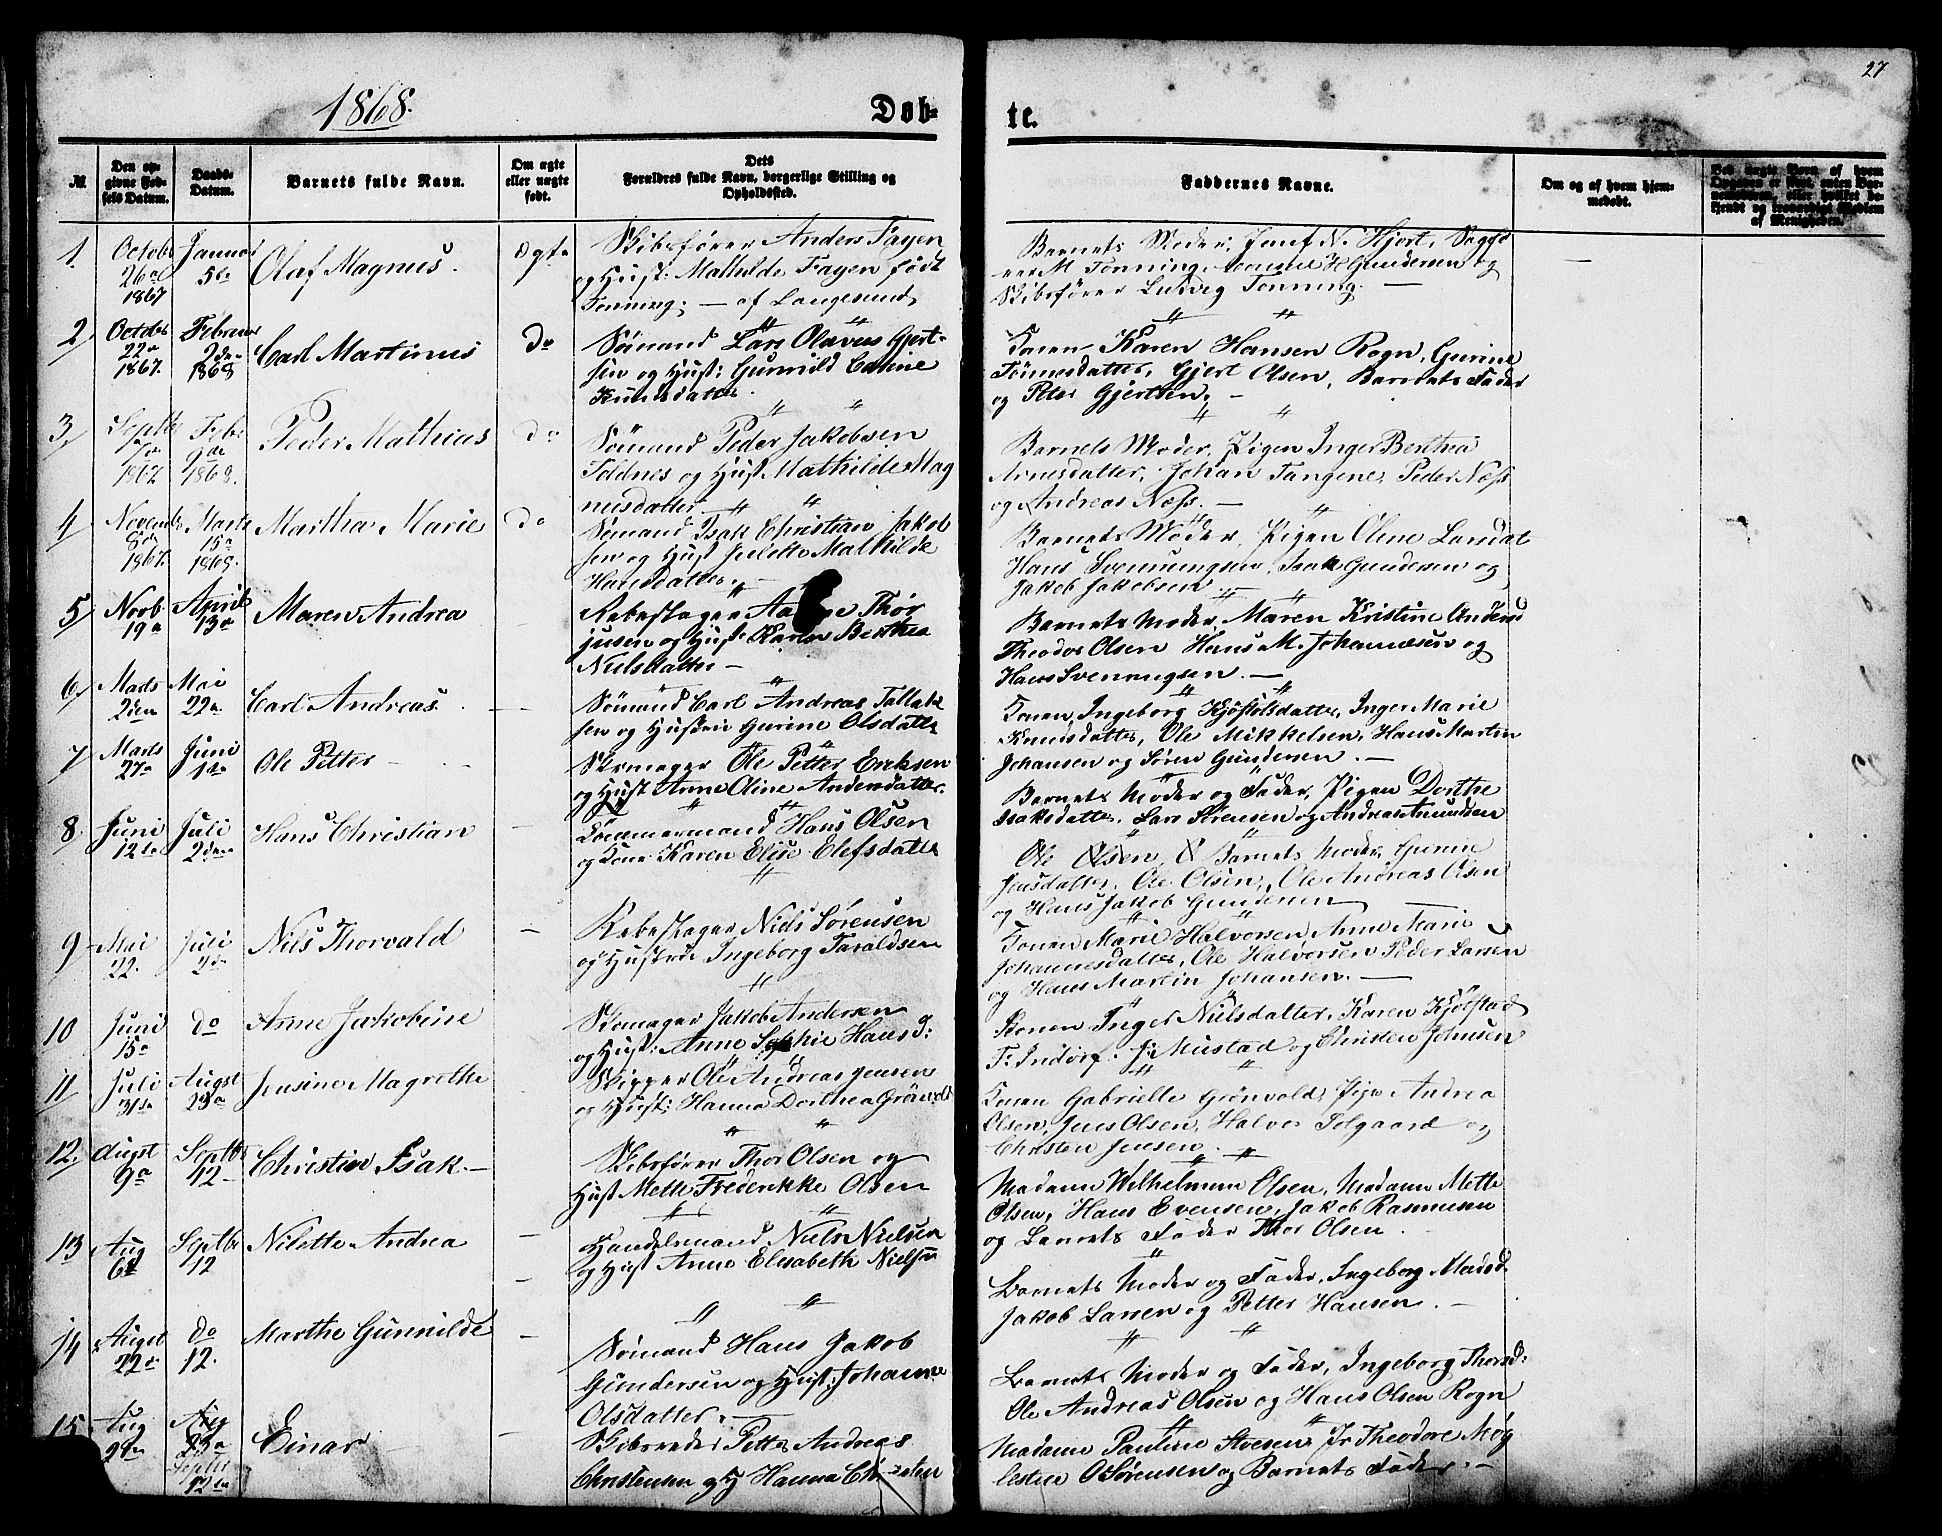 27
1868.
Døb-
te.
№
Den op-
givne Fød-
sels Datum.
Daabs-
Datum.
Barnets fulde Navn.
Om ægte
eller uægte
født.
Dets
Forældres fulde Navn, borgerlige Stilling og
Opholdssted.
Faddernes Navne.
Om og af hvem hjem-
medøbt.
1.
Octobr
26de
1867
Januar
5te
Olaf Magnus.
Ægte
Skibsfører Anders Fayen
og Hust: Mathilde Fayen født
Tonning; — af Langesund,
Barnets Moder, Josef N. Hjort,
M Tonning, H Gundersen og
Skibsfører Ludvig Tonning. —
2/
Octobr
22de
1867.
Februar
2den
1868
Carl Martinus
Do
Sømand Lars Olavus Gjert-
sen og Hust: Gunnild Caline
Knudsdatter.
Konen Karen Hansen Rogn, Gurine
Tønnesdatter, Gjert Olsen, Barnets Fader
og Peter Gjertsen, —
3,
Septbr
1867
Febr
9de
1868.
Peder Mathias
Do
Sømand Peder Jakobsen
Foldnes og Hust Mathilde Mag
nusdatter.
Barnets Moder, Pigen Inger Berthea
Arnesdatter, Johan Tangene, Peder Næss
og Andreas Næss. —
4/
Novemb
8de
1867.
Marts
15de
1868.
Martha Marie
Do
Sømand Isak Christian Jakob
sen og Hust Julette Mathilde
Hansdatter. —
Barnets Moder, Pigen Olene Larsdat
Hans Svenningsen, Isak Gundersen og
Jakob Jakobsen —
5/
Novb
19de
April
13de
Maren Andrea
Rebeslager Thor
jusen og Hust Karen Berthea
Nielsdatter —
Barnets Moder, Maren Kristine Andersd
Theodor Olsen Hans M. Johannesen og
Hans Svenningsen. —
6/
Marts
2den
Mai
22de
Carl Andreas.
Sømand Carl Andreas Tallak
sen og Hustru Gurine Olsdatter
Konen Ingeborg Kjøstolsdatter, Inger Marie
Knudsdatter, Ole Mikkelsen, Hans Martin
Johansen og Søren Gundersen. —
7/
Marts
27de
Juni
1ste
Ole Petter —
Skomager Ole Petter Eriksen
og Hust Anne Oline Andersdatter.
Barnets Moder og Fader, Pigen Dorthe
Isaksdatter, Lars Sørensen og Andreas Amundsen
8/
Juni
12te
Juli
2den
Hans Christian
Tømmermand Hans Olsen
og Kone Karen Elise Elefsdatter
Ole Olsen, Barnets Moder, Gunne
Jensdatter, Ole Olsen, Ole Andreas Olsen
og Hans Jakob Gundersen
9
Mai
22.
Juli
2de
Nils Thorvald
Rebeslager Niels Sørensen
og Hustru Ingeborg Taraldsen
Konen Marie Halvorsen Anne Marie
Johannesdatter, Ole Halvorsen Peder Larsen
og Hans Martin Johansen. —
10
Juni
15de
do
Anne Jakobine
Skomager Jakob Andersen
og Hust: Anne Sophie Hans D:
Konen Inger Nielsdatter, Karen Kjølstad
T. Indorf. Mustad og Christen Johnsen
11
Juli
31te
Augst
23de
Jensine Magrethe
Skipper Ole Andreas Jensen
og Hust: Hanna Dorthea Grönvold
Konen Gabrielle Grönvold, Pige Andrea
Olsen, Jens Olsen, Halvor Solgaard og
Christen Jensen.
12.
August
9de
Septbr
12 —
Christian Isak. —
Skibsfører Thor Olsen og
Hust Mette Frederikke Olsen
Madame Wilhelmine Olsen, Madame Mette
Olsen, Hans Evensen, Jakob Rasmussen
og Barnets Fader Thor Olsen.
13
Aug
6te
Septbr
12
Nilette Andrea
Handelsmand Niels Nielsen
og Hust Anne Elesabeth Nielsen
Barnets Moder og Fader, Ingeborg Madsd.
Jakob Larsen og Petter Hansen. —
14
August
22de
do
12.
Marthe Gunnilde
Sømand Hans Jakob
Gundersen og Hust: Johanne
Olsdatter. —
Barnets Moder og Fader, Ingeborg Thorsd:
Ole Andreas Olsen og Hans Olsen Rogn
15
Aug
Aug
23de
Septbr
12te
Einar
Skibsreder Petter Andreas
Christensen og H Hanna
Madame Pauline Jr Theodore
O Sørensen og Barnets Fader. —